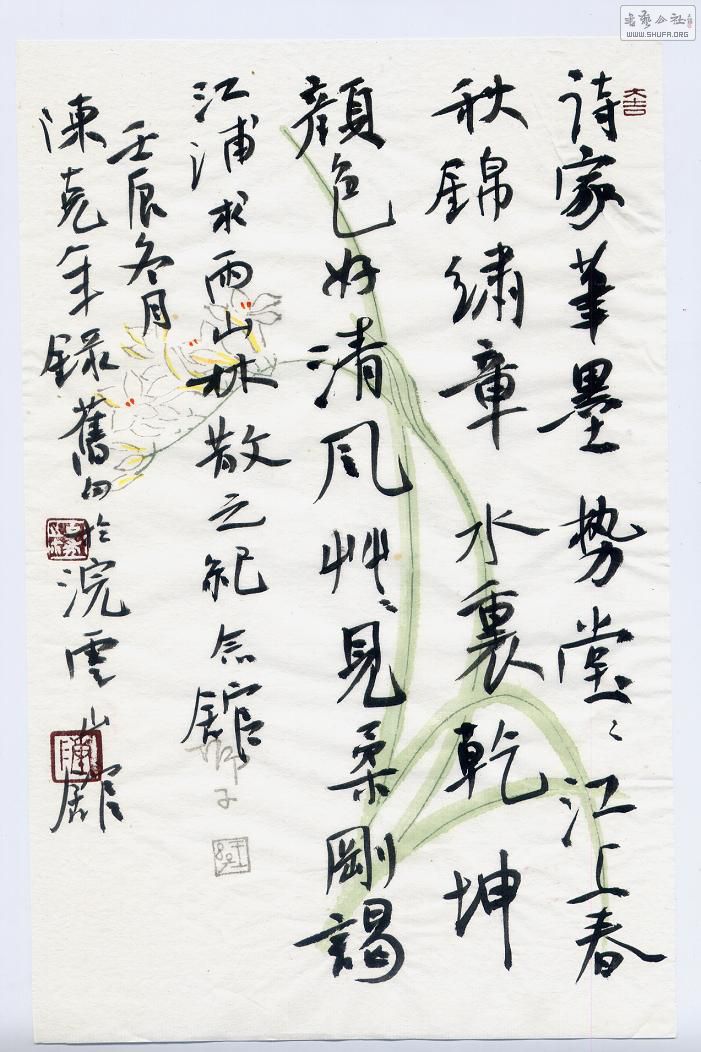 诗家筆墨势堂〻江上春
秋錦繡章水裏乾坤
顏色好清风艸〻見柔剛謁
江浦求雨山林散之紀念館
壬辰冬月
陳克年錄舊句於浣雲山館
師子
書藝公社
WWW.SHUFA.ORG